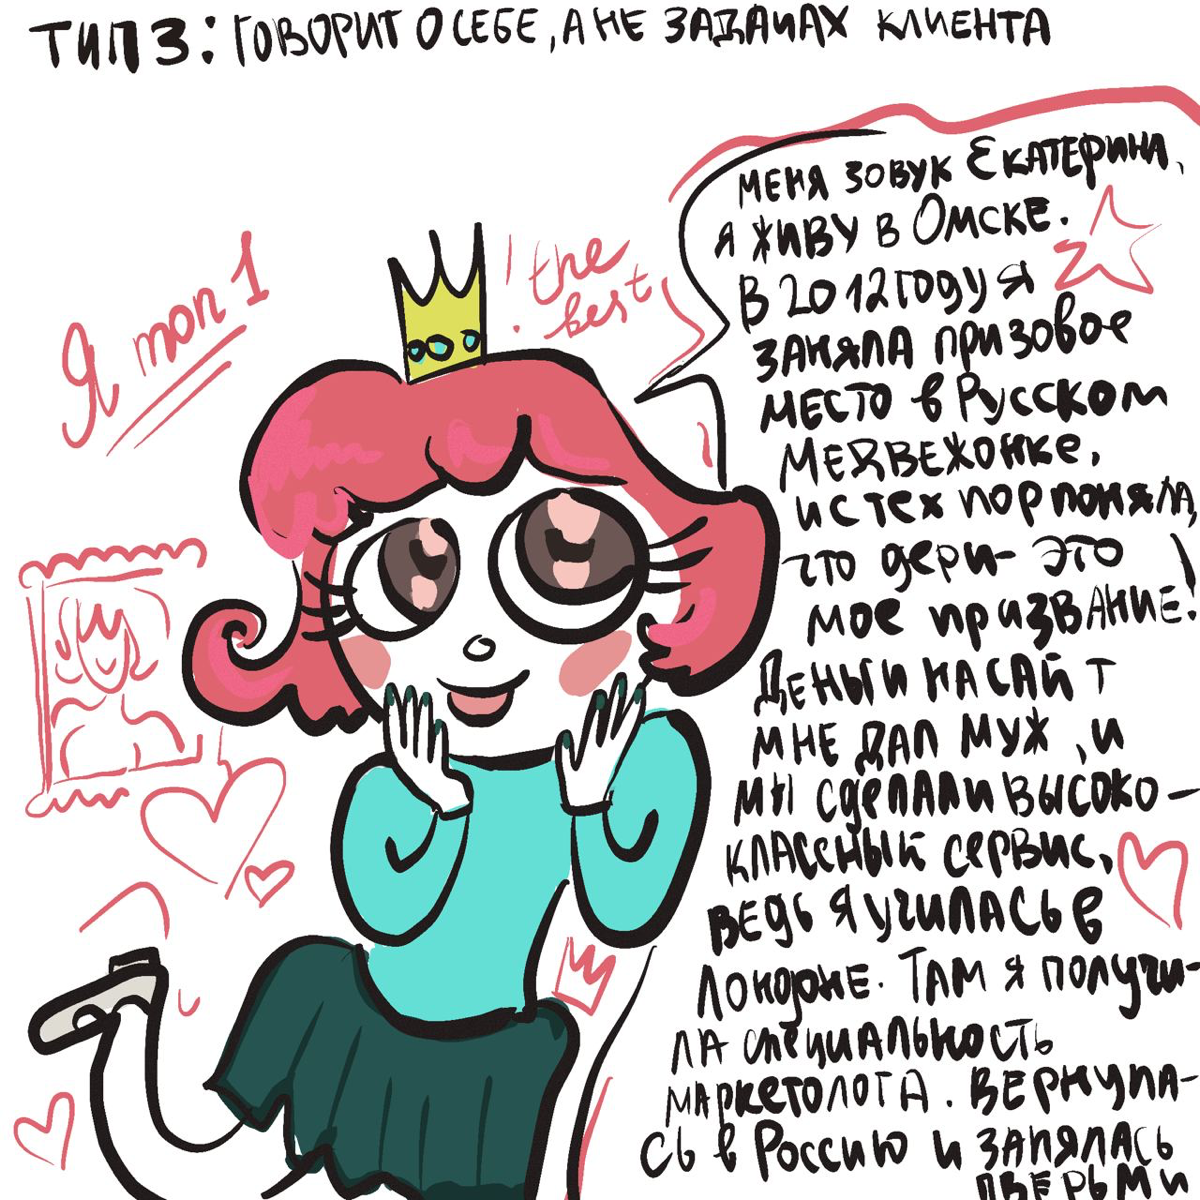 ТИП 3: ГОВОРИТ О СЕБЕ, А НЕ ЗАДАЧАХ КЛИЕНТА
МЕНЯ ЗОВУК ЕКАТЕРИНА,
Я ЖИВУ В ОМСКЕ.
В 2012 ГОДУ Я
ЗАНЯЛА ПРИЗОВОЕ
МЕСТО В РУССКОМ
МЕДВЕЖОНКЕ,
И С ТЕХ ПОР ПОНЯЛА,
ЧТО ДЕРИ- ЭТО
МОЕ ПРИЗВАНИЕ!
ДЕНЬГИ НА САЙТ
МНЕ ДАЛ МУЖ, И
МЫ СДЕЛАЛИ ВЫСОКО-
КЛАССНЫЙ СЕРВИС,
ВЕДЬ Я УЧИЛАСЬ В
ЛОНДОНЕ. ТАМ Я ПОЛУЧИ-
ЛА СПЕЦИАЛЬНОСТЬ
МАРКЕТОЛОГА. ВЕРНУЛА-
СЬ В РОССИЮ И ЗАНЯЛАСЬ
ДВЕРЬМИ
Я топ 1
the
best